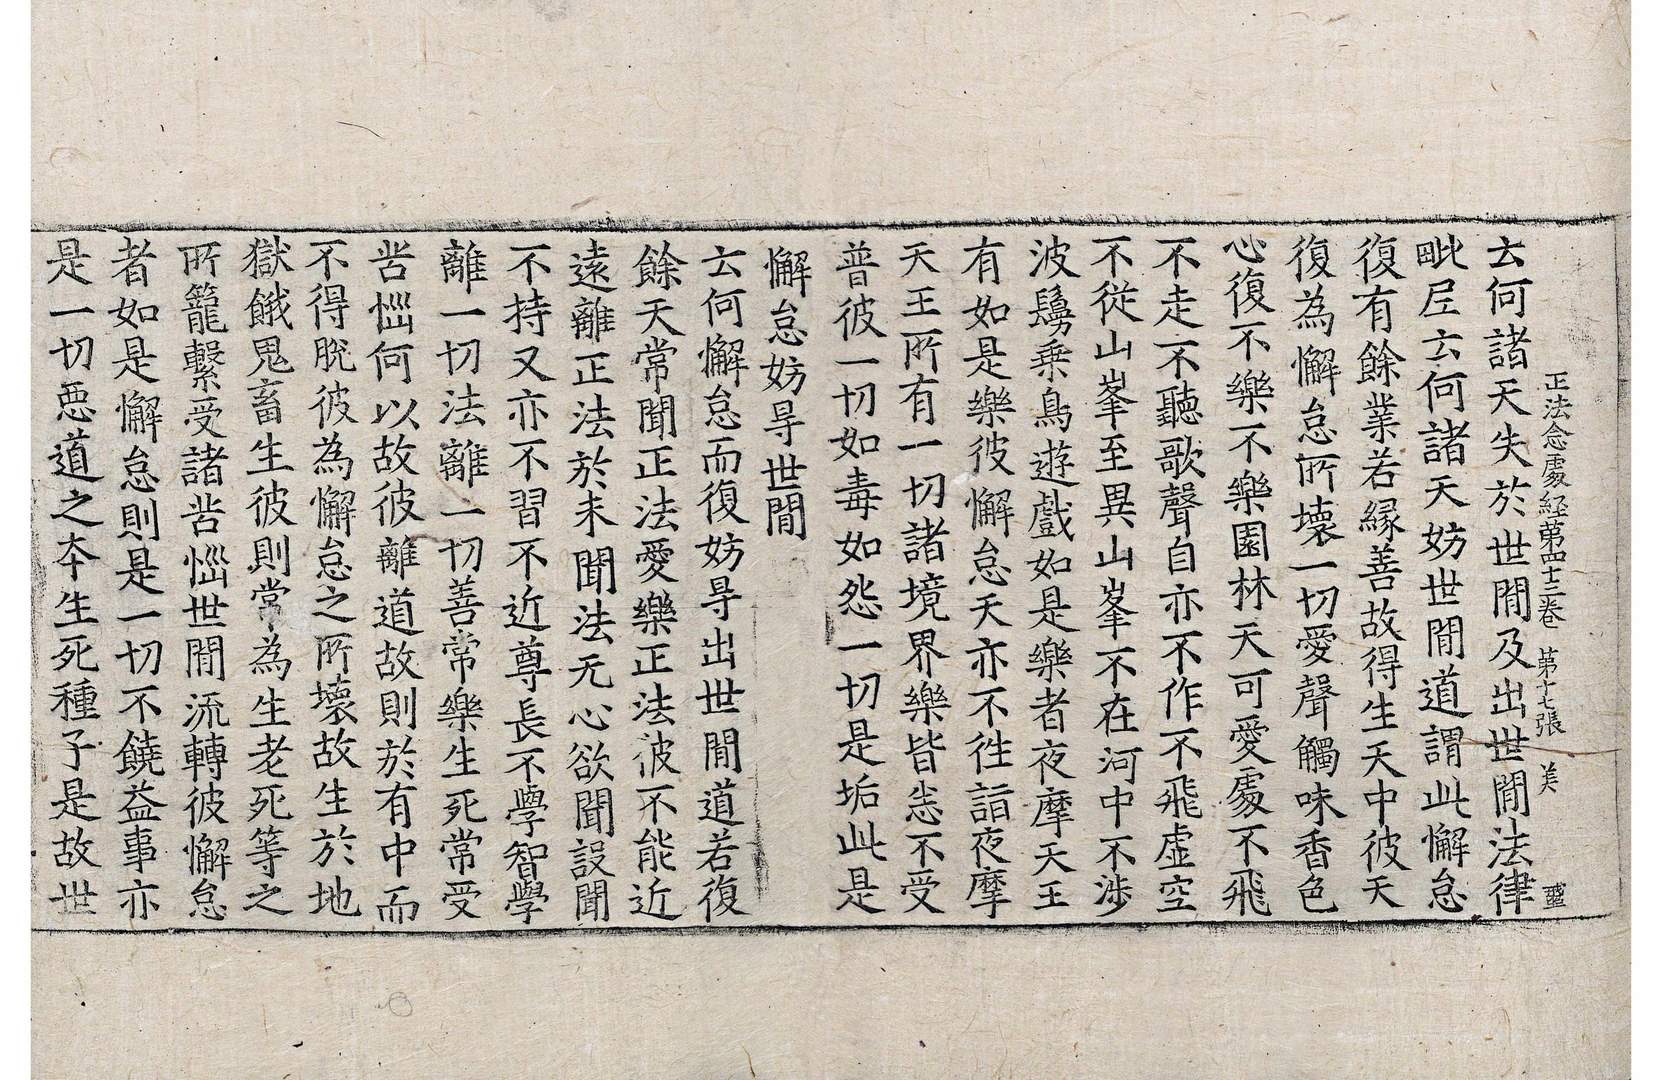 正法念處経第四十三卷 第十七張 美
云何諸天失於世間及出世間法律
毗尼云何諸天妨世間道謂此懈怠
復有餘業若緣善故得生天中彼天
復為懈怠所壞一切愛聲觸味香色
心復不樂不樂園林天可愛處不飛
不走不聽歌聲自亦不作不飛虛空
不從山峯至異山峯不在河中不渉
波鬘乗鳥遊戲如是樂者夜摩天王
有如是樂彼懈怠天亦不徃詣夜摩
天王所有一切諸境界樂皆悉不受
普彼一切如毒如怨一切是垢此是
懈怠妨㝵世間
云何懈怠而復妨㝵出世間道若復
餘天常聞正法愛樂正法彼不能近
遠離正法於未聞法无心欲聞設聞
不持又亦不習不近尊長不學智學
離一切法離一切善常樂生死常受
苦惱何以故彼離道故則於有中而
不得脫彼為懈怠之所壞故生於地
獄餓鬼畜生彼則常為生老死等之
所籠繫受諸苦惱世間流轉彼懈怠
者如是懈怠則是一切不饒益事亦
是一切惡道之本生死種子是故世